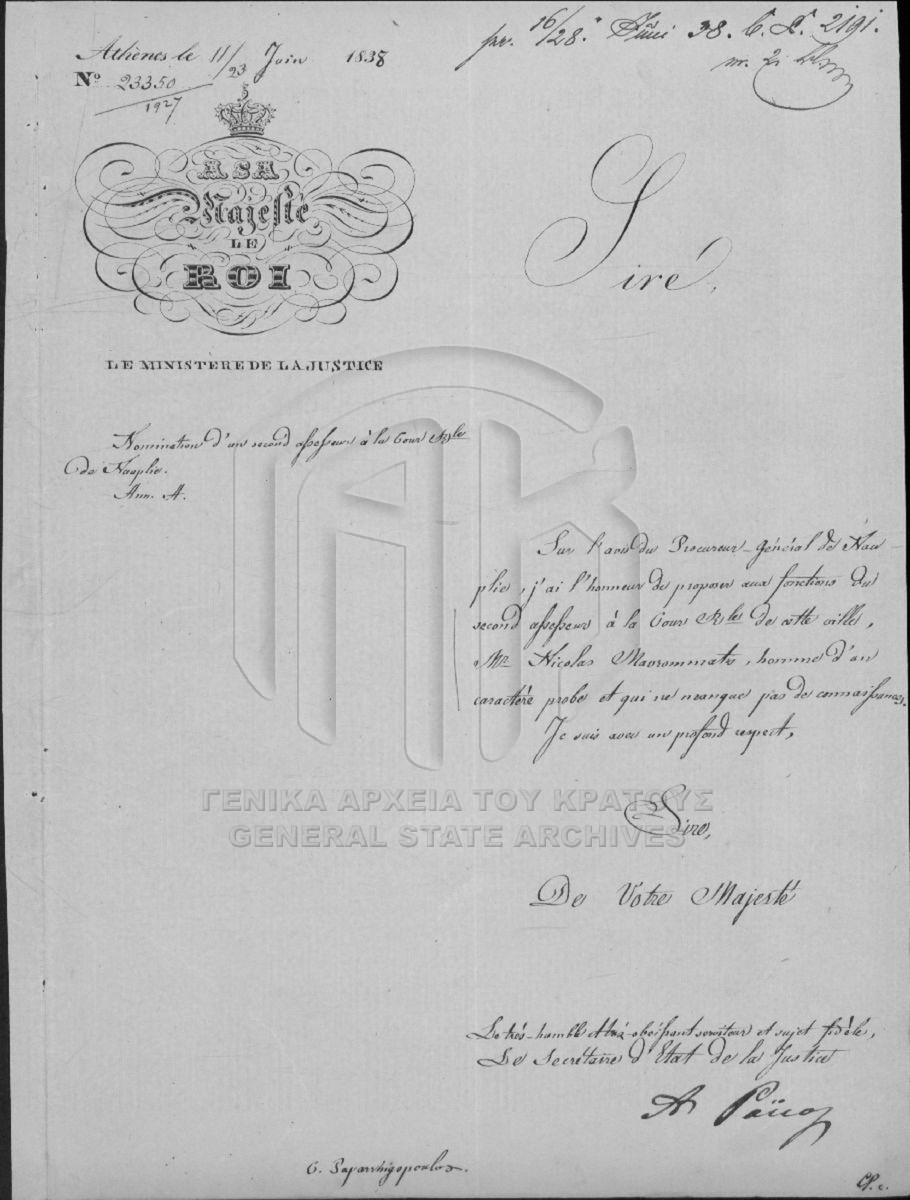 Athènes le 11/23 Juin 1838
Nº 23350
1927
pr. 16/28. Juni 38. C. N. 2191.
À SA
Majesté
LE
ROI
LE MINISTÈRE DE LA JUSTICE
Sire,
Nomination d'un second assesseur à la Cour Rle
de Nauplie.
Ann. A.
Sur l'avis du Procureur-Général de Nau-
plie, j'ai l'honneur de proposer aux fonctions du
second assesseur à la Cour Rle de cette ville,
Mr Nicolas Mavrommati, homme d'un
caractère probe et qui ne manque pas de connaissances.
Je suis avec un profond respect,
Sire,
De Votre Majesté
Le très-humble et très-obéissant serviteur et sujet fidèle,
Le Secrétaire d'Etat de la Justice
A Païcos
C. Paparrhigopoulos.
ΓΕΝΙΚΑ ΑΡΧΕΙΑ ΤΟΥ ΚΡΑΤΟΥΣ
GENERAL STATE ARCHIVES